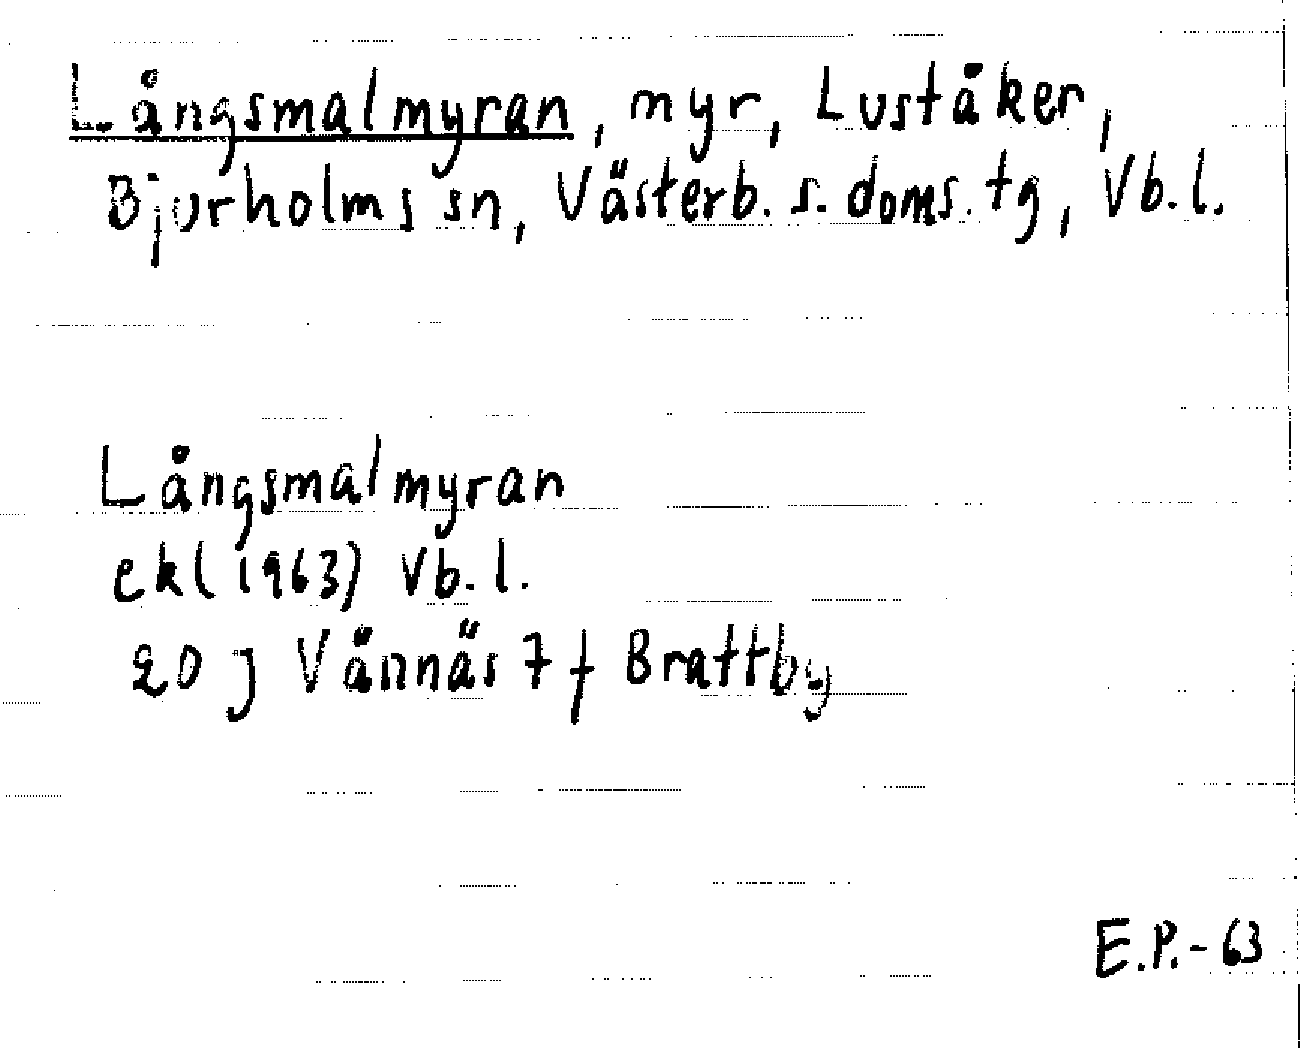 Långsmalmyran, myr, Luståker,
Bjurholms sn, Västerb. s. doms. tg, Vb. l.
Långsmalmyran
ekl (1963) Vb. l.
20 J Vännäs 7 f Brattby
E.P.-63